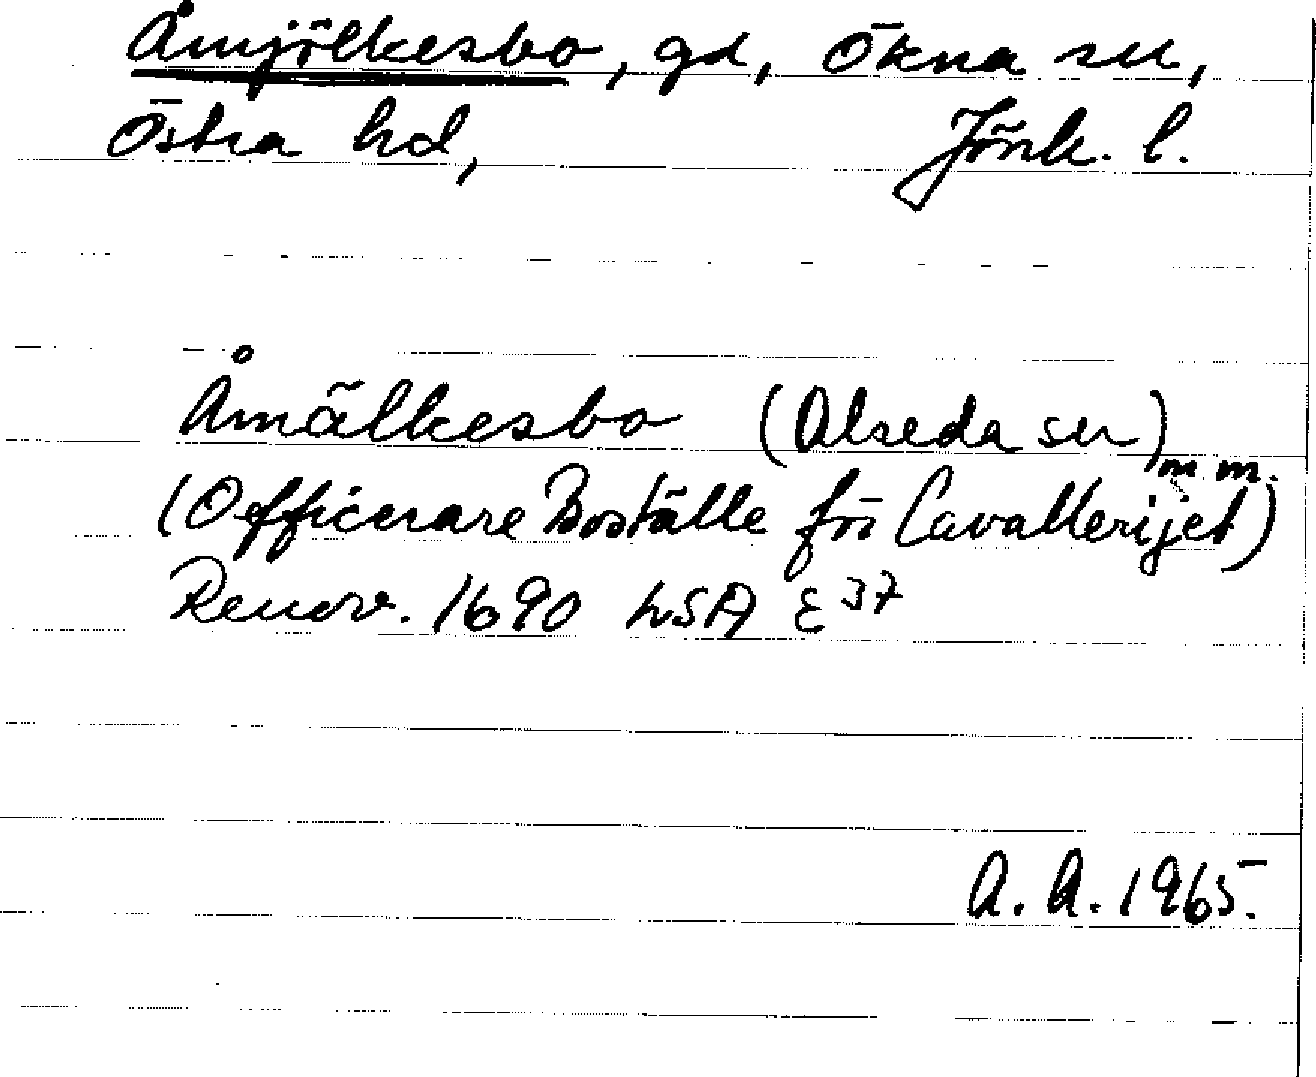 Åmjölkesbo, gd, Ökna sn,
Östra hd, Jönk. l.
Åmälkesbo (Alseda sn) m m.
(Officerare Boställe för Cavallerijet)
Renov. 1690 LSA E37
A. A. 1965.